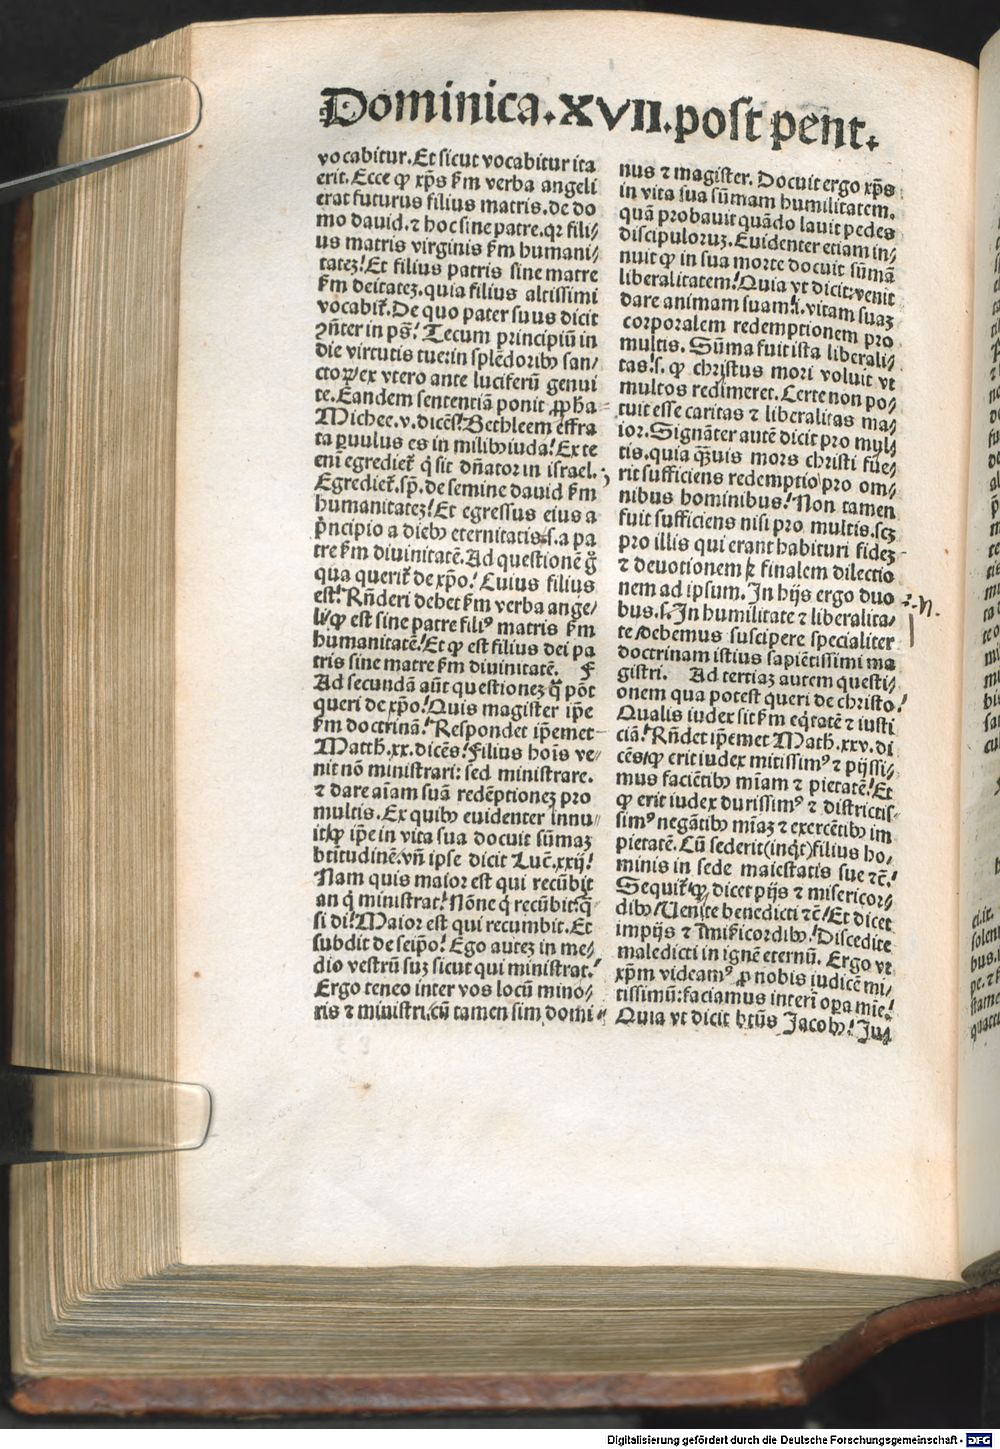 Dominica.XVII.post pent.
vocabitur. Et sicut vocabitur ita
erit. Ecce ꝙ xp̄s ẜm verba angeli
erat futurus filius matris. de do
mo david. ⁊ hoc sine patre. qꝛ fili⸗
us matris virginis ẜm humani⸗
tatez! Et filius patris sine matre
ẜm deitatez. quia filius altissimi
vocabit᷑. De quo pater suus dicit
ꝯñter in ps̄! Tecum principiū in
die virtutis tue in splēdoribꝫ san⸗
ctoꝝ/ex vtero ante luciferū genui
te. Eandem sententiā ponit ꝓp̄ha
Michee. v. dicēs! Bethleem effra
ta paruulus es in milibꝫ iuda! Ex te
eni egrediet᷑ q̇ sit dn̄ator in israel.
Egrediet᷑. sp̄. de semine dauid ẜm
humanitatez! Et egressus eius a
pͥncipio a diebꝫ eternitatis. s. a pa
tre ẜm diuinitatē. Ad questionē g̊
qua querit᷑ de xp̄o! Cuius filius
est! Rn̄deri debet ẜm verba ange⸗
li/ꝙ est sine patre filiꝰ matris ẜm
humanitatē! Et ꝙ est filius dei pa
tris sine matre ẜm diuinitatē. F
Ad secundā aūt questionez q̄ pōt
queri de xp̄o! Quis magister ip̄e
ẜm doctrinā! Respondet ip̄emet
Matth. xx. dicēs! Filius hoīs ve⸗
nit nō ministrari: sed ministrare.
⁊ dare aīam suā redēptionez pro
multis. Ex quibꝫ euidenter innu⸗
it/ꝙ ip̄e in vita sua docuit sūmaz
btītudinē. vn̄ ipse dicit Luc̄. xxij!
Nam quis maior est qui recūbit
an q̇ ministrat! Nōne q̇ recūbit: q̇
si di! Maior est qui recumbit. Et
subdit de seip̄o! Ego autez in me⸗
dio vestrū suz sicut qui ministrat!
Ergo teneo inter vos locū mino⸗
ris ⁊ ministri; cū tamen sim domi⸗
nus ⁊ magister. Docuit ergo xp̄s
in vita sua sūmam humilitatem.
quā probauit quādo lauit pedes
discipuloruz. Euidenter etiam in⸗
nuit ꝙ in sua morte docuit sūmā
liberalitatem! Quia vt dicit: venit
dare animam suam! i. vitam suaz
corporalem redemptionem pro
multis. Sūma fuit ista liberali⸗
tas! s. ꝙ christus mori voluit vt
multos redimeret. Certe non po⸗
tuit esse caritas ⁊ liberalitas ma⸗
ior. Signāter autē dicit pro mul⸗
tis. quia q̄uis mors christi fue⸗
rit sufficiens redemptio pro om⸗
nibus hominibus! Non tamen
fuit sufficiens nisi pro multis. scꝫ
pro illis qui erant habituri fidez
⁊ deuotionem ⁊ finalem dilectio
nem ad ipsum. In hijs ergo duo
bus. s. In humilitate ⁊ liberalita⸗
te/debemus suscipere specialiter
doctrinam istius sapiētissimi ma
gistri. Ad tertiaz autem questi⸗
onem qua potest queri de christo!
Qualis iudex sit ẜm eq̇tatē ⁊ iusti
ciā! Rn̄det ip̄emet Math. xxv. di
cēs/ꝙ erit iudex mitissimꝰ ⁊ pijssi⸗
mus faciētibꝫ mīam ⁊ pietatē! Et
ꝙ erit iudex durissimꝰ ⁊ districtis⸗
simꝰ negātibꝫ mīaz ⁊ exercētibꝫ im
pietatē. Cū sederit (inq̇t) filius ho⸗
minis in sede maiestatis sue ⁊c̄!
Sequit᷑/ꝙ dicet pijs ⁊ misericor⸗
dibꝫ/Venite benedicti ⁊c̄! Et dicet
impijs ⁊ īmiẜicordibꝫ! Discedite
maledicti in ignē eternū. Ergo vt
xp̄m videamꝰ ꝓ nobis iudicē mi⸗
tissimū: faciamus interi oꝑa mīe!
Quia vt dicit btūs Jacobꝫ! Ju⸗
Digitalisierung gefördert durch die Deutsche Forschungsgemeinschaft - DFG